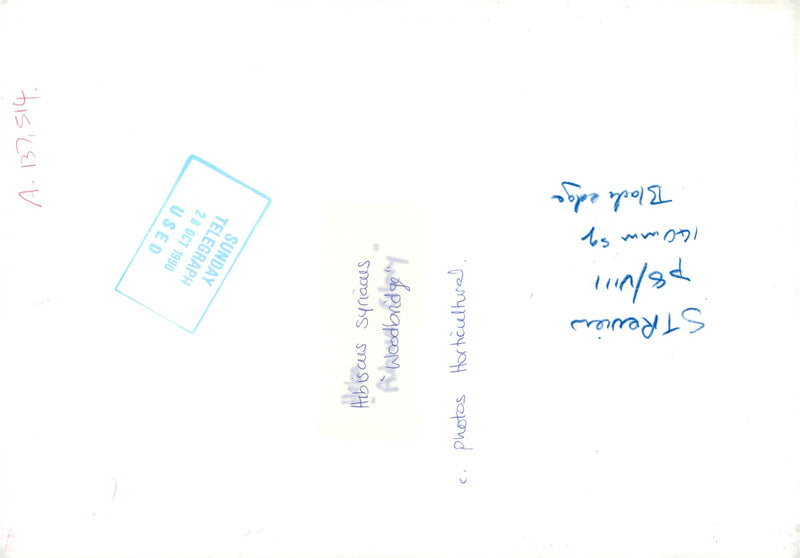 A. 137,514.
SUNDAY
TELEGRAPH
28 OCT 1990
USED
Hibiscus syriacus
"Woodbridge"
c. photos Horticultural.
ST Review
p8/VIII
140mm sq
Black edge